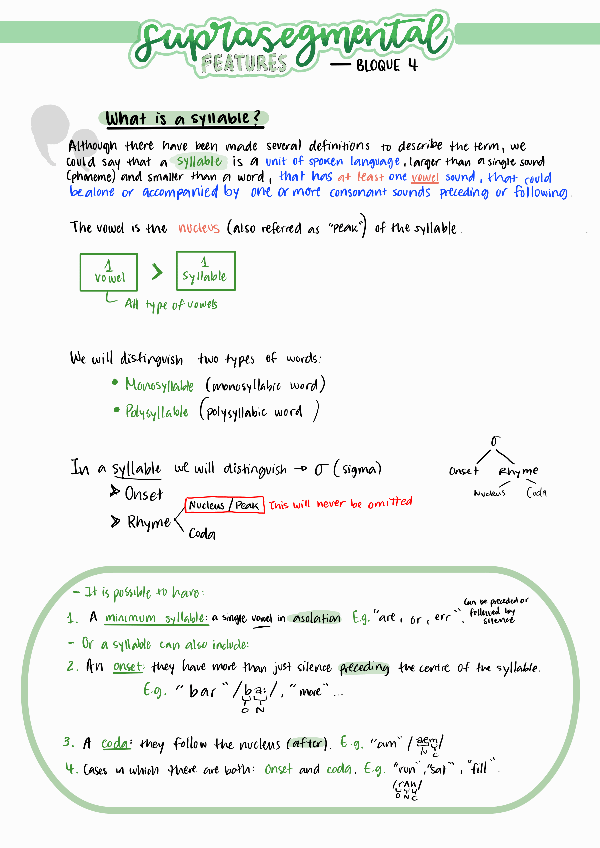 suprasegmental
FEATURES — BLOQUE 4
What is a syllable?
Although there have been made several definitions to describe the term, we
could say that a syllable is a unit of spoken language, larger than a single sound
(phoneme) and smaller than a word, that has at least one vowel sound, that could
be alone or accompanied by one or more consonant sounds preceding or following.
The vowel is the nucleus (also referred as "peak") of the syllable.
1 vowel > 1 syllable
All type of vowels
We will distinguish two types of words:
• Monosyllable (monosyllabic word)
• Polysyllable (polysyllabic word )
In a syllable we will distinguish → σ (sigma)
➤ Onset
➤ Rhyme
Nucleus / Peak This will never be omitted
Coda
σ
Onset Rhyme
Nucleus Coda
- It is possible to have:
1. A minimum syllable: a single vowel in asolation E.g. "are, or, err".
Can be preceded or
followed by
silence
- Or a syllable can also include:
2. An onset: they have more than just silence preceding the centre of the syllable.
E.g. "bar" /ba:/, "more"...
O N
3. A coda: they follow the nucleus (after). E.g. "am" /æm/
N C
4. Cases in which there are both: onset and coda. E.g. "run", "sat", "fill".
/rʌn/
O N C